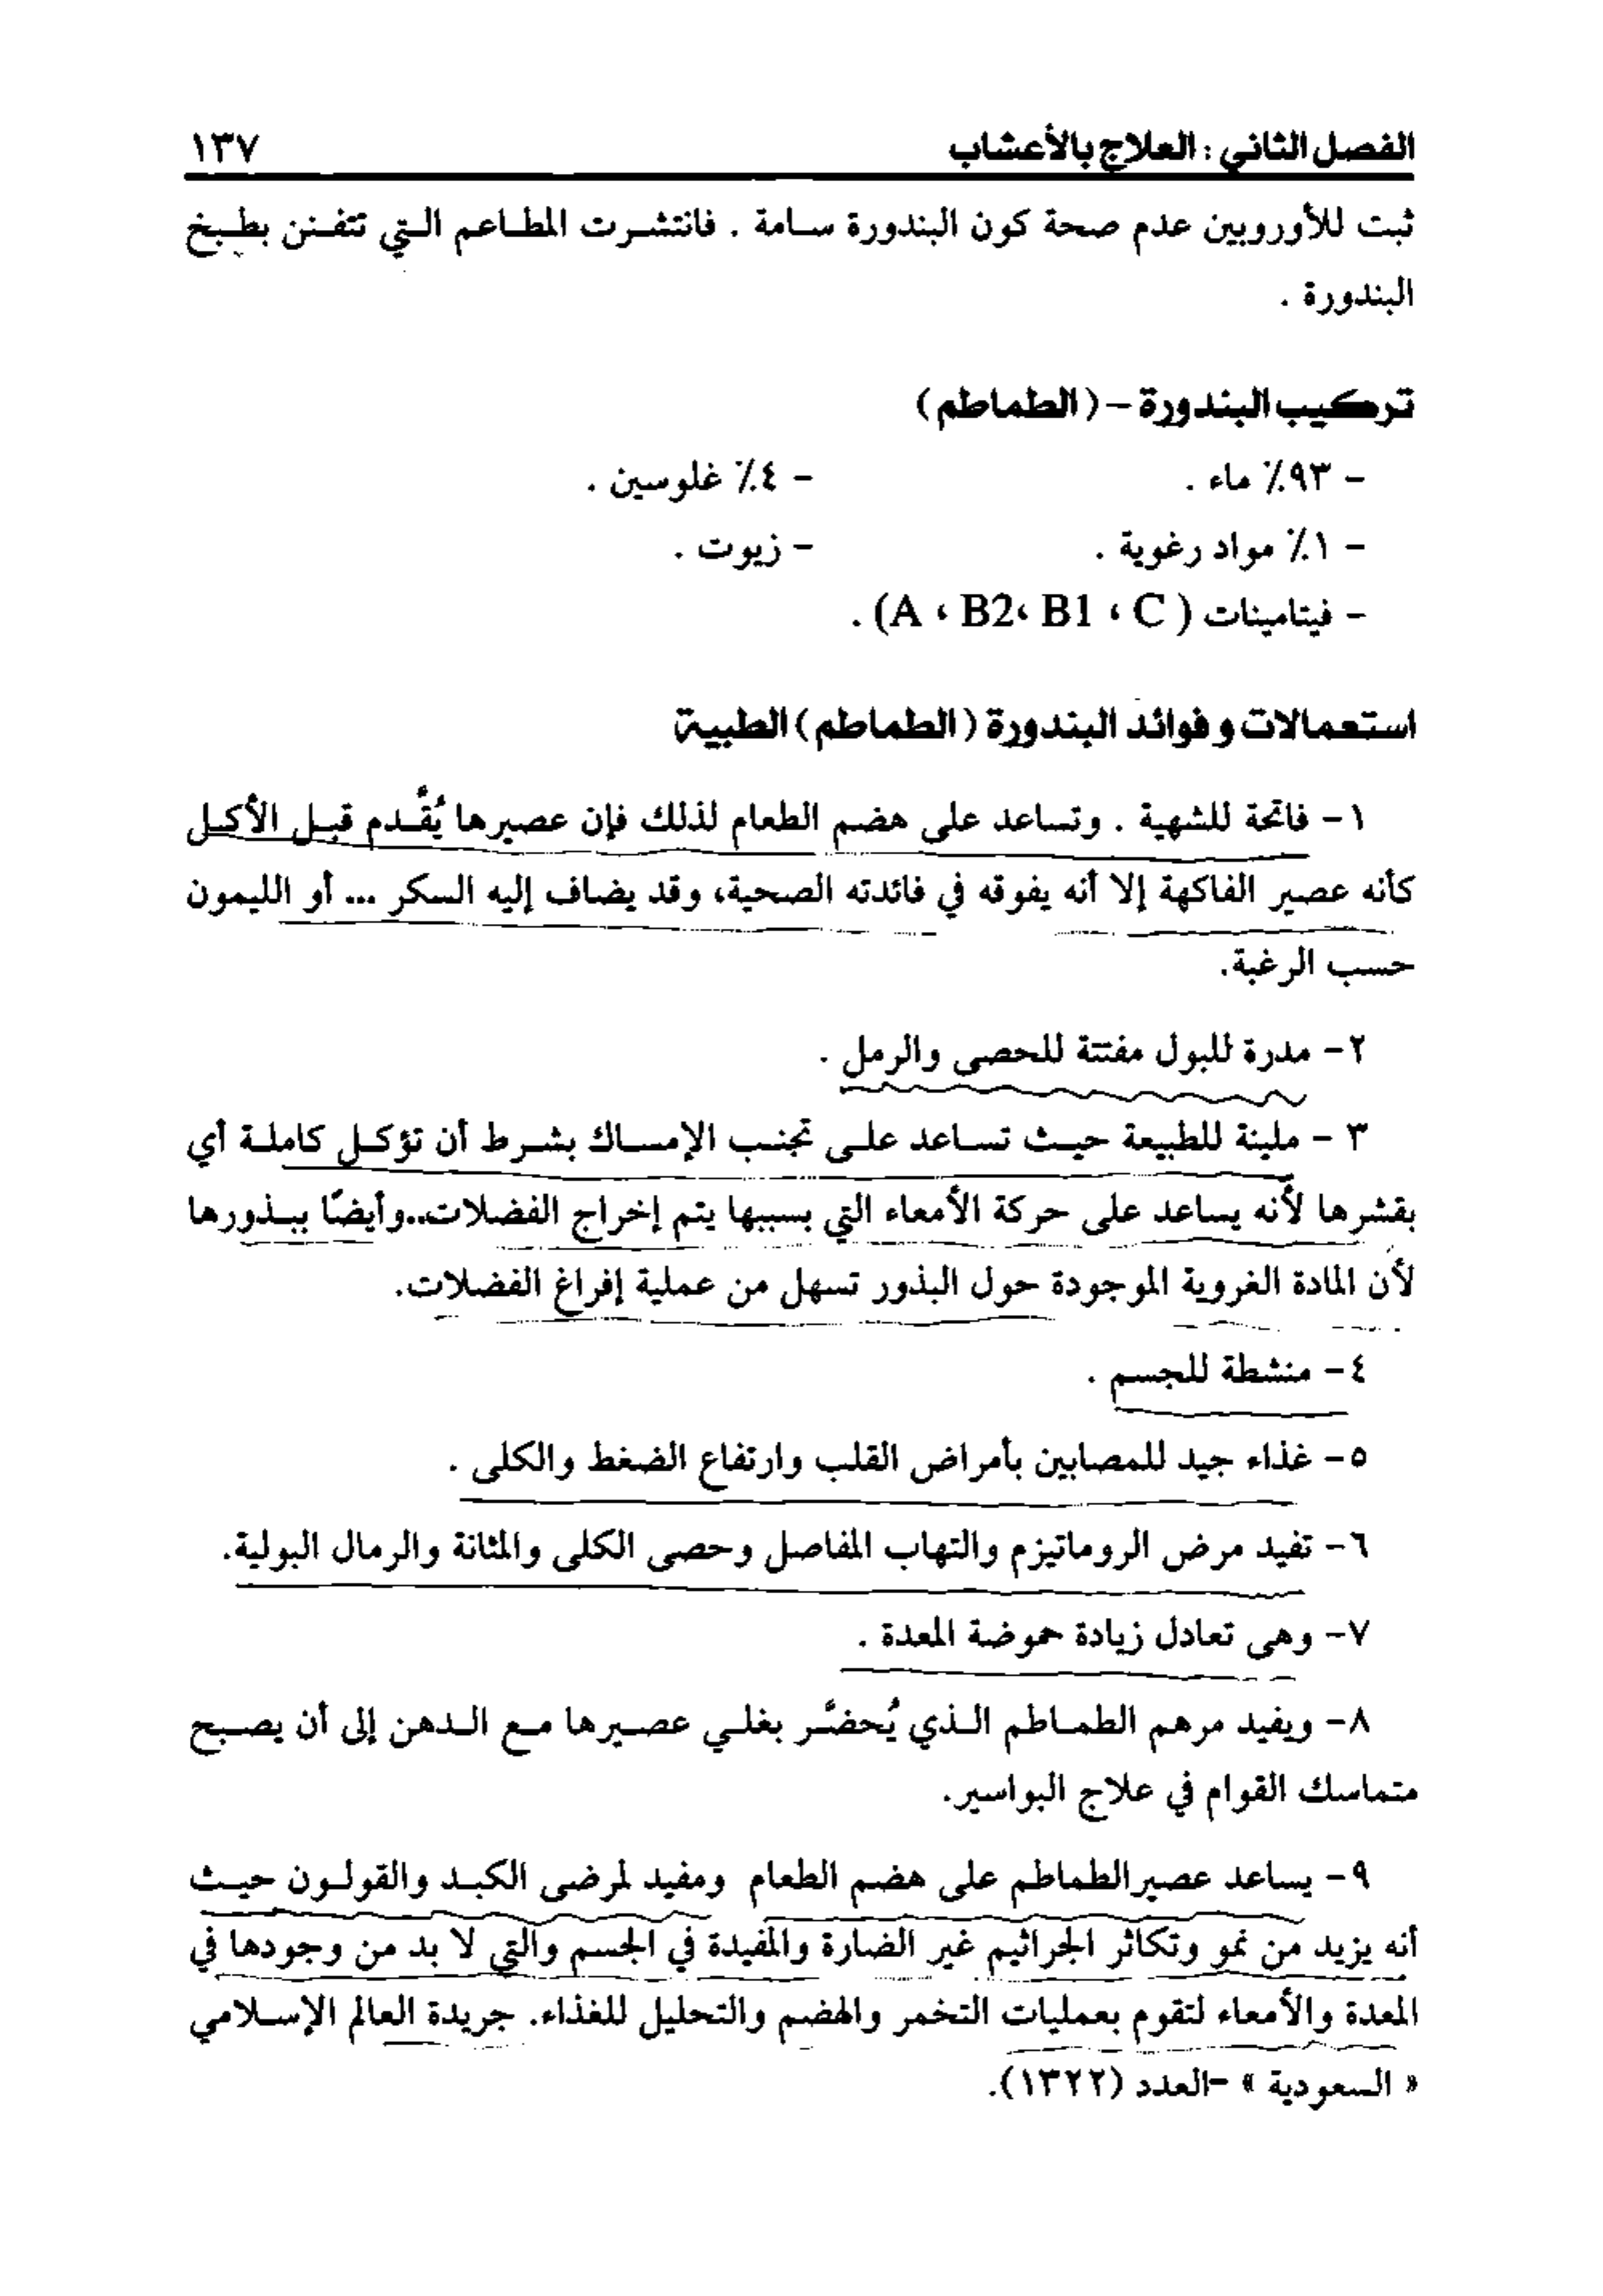 الفصل الثاني : العلاج بالأعشاب ١٣٧
ثبت للأوروبيين عدم صحة كون البندورة سامة . فانتشرت المطاعم التي تتفنن بطبخ
البندورة .
تركيب البندورة – (الطماطم)
– ٩٣٪ ماء . – ٤٪ غلوسين .
– ١٪ مواد رغوية . – زيوت .
– فيتامينات ( A ، B2، B1 ، C) .
استعمالات و فوائد البندورة (الطماطم) الطبية
١ – فاتحة للشهية . وتساعد على هضم الطعام لذلك فإن عصيرها يُقَّدم قبل الأكل
كأنه عصير الفاكهة إلا أنه يفوقه في فائدته الصحية، وقد يضاف إليه السكر ... أو الليمون
حسب الرغبة.
٢– مدرة للبول مفتتة للحصى والرمل .
٣ – ملينة للطبيعة حيث تساعد على تجنب الإمساك بشرط أن تؤكل كاملة أي
بقشرها لأنه يساعد على حركة الأمعاء التي بسببها يتم إخراج الفضلات..وأيضًا ببذورها
لأن المادة الغروية الموجودة حول البذور تسهل من عملية إفراغ الفضلات.
٤– منشطة للجسم .
٥– غذاء جيد للمصابين بأمراض القلب وارتفاع الضغط والكلى .
٦– تفيد مرض الروماتيزم والتهاب المفاصل وحصى الكلى والمثانة والرمال البولية.
٧– وهى تعادل زيادة حموضة المعدة .
٨– ويفيد مرهم الطماطم الذي يُحضَّر بغلي عصيرها مع الدهن إلى أن يصبح
متماسك القوام في علاج البواسير.
٩– يساعد عصيرالطماطم على هضم الطعام ومفيد لمرضى الكبد والقولون حيث
أنه يزيد من نمو وتكاثر الجراثيم غير الضارة والمفيدة في الجسم والتي لا بد من وجودها في
المعدة والأمعاء لتقوم بعمليات التخمر والهضم والتحليل للغذاء. جريدة العالم الإسلامي
« السعودية » –العدد (١٣٢٢).